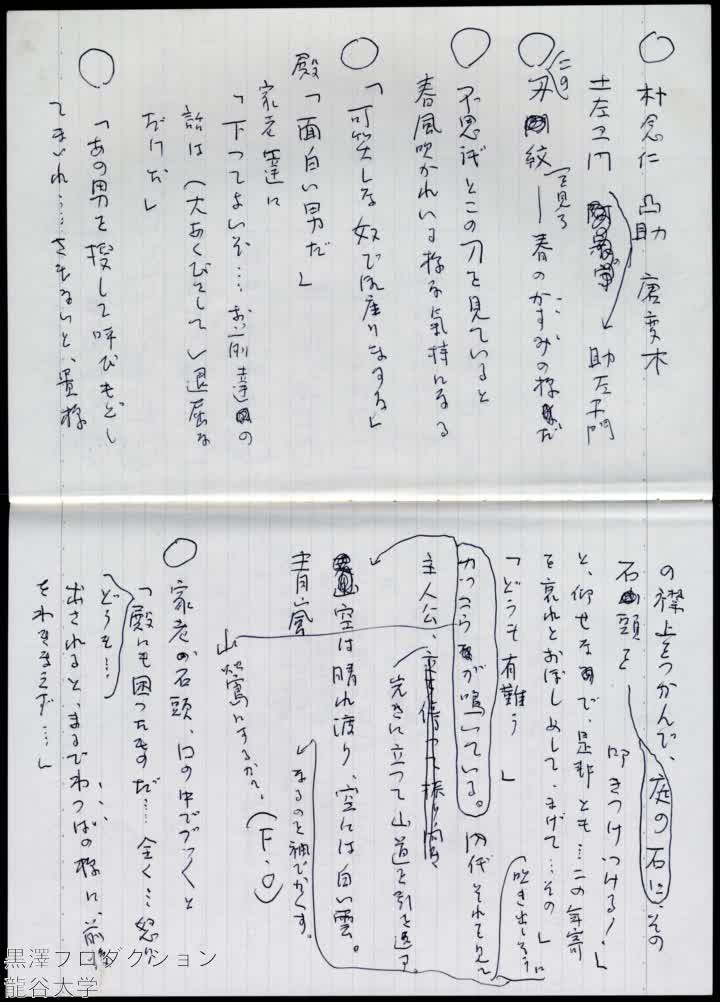 ○ 朴念仁 凸助 唐変木
土左ヱ門 助左ヱ門
○ この刃紋を見ろ――春のかすみの様だ
不思議とこの刀を見ていると
○ 春風吹かれいる様な気持になる
○「可笑しな奴で御座りまする」
殿「面白い男だ」
家老達に
「下つてよいぞ……お前達の
話は(大あくびをして)退屈な
だけだ」
○「あの男を捜して呼びもどし
てまいれ……さもないと、貴様
の襟上をつかんで、庭の石に、その
石頭を叩きつけつける!」
と、仰せなので、是非とも…この年寄
を哀れとおぼしめして、まげて…その」
「どうも有難う」吹き出しそうに
かつこうが鳴いている。
主人公、
先きに立つて山道を引き返す。
なるのを袖でかくす。
空は晴れ渡り、空には白い雲。
青嵐
山
にするか?(F・O)
○ 家老の石頭、口の中でブツ〱と
「殿にも困つたものだ……全く…怒り
どうも…
出されると、まるでわつぱの様に、前後
をわきまえず…」
黒澤プロダクション
龍谷大学